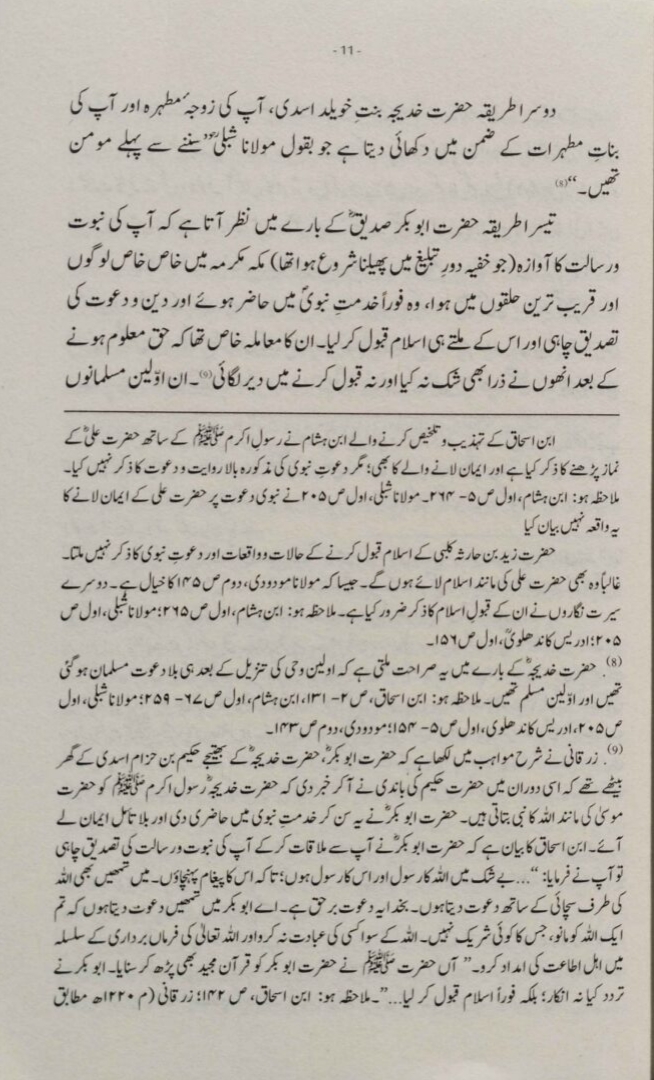 - 11 -
دوسرا طریقہ حضرت خدیجہ بنتِ خویلد اسدی، آپ کی زوجۂ مطہرہ اور آپ کی
بناتِ مطہرات کے ضمن میں دکھائی دیتا ہے جو بقول مولانا شبلیؒ ”سننے سے پہلے مومن
تھیں۔“(8)
تیسرا طریقہ حضرت ابو بکر صدیقؓ کے بارے میں نظر آتا ہے کہ آپ کی نبوت
ورسالت کا آوازہ (جو خفیہ دورِ تبلیغ میں پھیلنا شروع ہوا تھا) مکہ مکرمہ میں خاص خاص لوگوں
اور قریب ترین حلقوں میں ہوا، وہ فوراً خدمتِ نبویؐ میں حاضر ہوئے اور دین و دعوت کی
تصدیق چاہی اور اس کے ملتے ہی اسلام قبول کر لیا۔ ان کا معاملہ خاص تھا کہ حق معلوم ہونے
کے بعد انھوں نے ذرا بھی شک نہ کیا اور نہ قبول کرنے میں دیر لگائی(9)۔ ان اوّلین مسلمانوں
ابن اسحاق کے تہذیب و تلخیص کرنے والے ابن ہشام نے رسولِ اکرم ﷺ کے ساتھ حضرت علیؓ کے
نماز پڑھنے کا ذکر کیا ہے اور ایمان لانے والے کا بھی؛ مگر دعوتِ نبوی کی مذکورہ بالا روایت و دعوت کا ذکر نہیں کیا۔
ملاحظہ ہو: ابن ہشام، اول ص ۵- ۲۶۴۔ مولانا شبلی، اول ص ۲۰۵ نے نبوی دعوت پر حضرت علی کے ایمان لانے کا
یہ واقعہ نہیں بیان کیا
حضرت زید بن حارثہ کلبی کے اسلام قبول کرنے کے حالات و واقعات اور دعوتِ نبوی کا ذکر نہیں ملتا۔
غالباً وہ بھی حضرت علی کی مانند اسلام لائے ہوں گے۔ جیسا کہ مولانا مودودی، دوم ص ۱۴۵ کا خیال ہے۔ دوسرے
سیرت نگاروں نے ان کے قبولِ اسلام کا ذکر ضرور کیا ہے۔ ملاحظہ ہو: ابن ہشام، اول ص ۲۶۵؛ مولانا شبلی، اول ص
۲۰۵؛ ادریس کاندھلویؒ، اول ص ۱۵۶۔
(8). حضرت خدیجہؓ کے بارے میں یہ صراحت ملتی ہے کہ اولین وحی کی تنزیل کے بعد ہی بلا دعوت مسلمان ہو گئی
تھیں اور اوّلین مسلم تھیں۔ ملاحظہ ہو: ابن اسحاق، ص ۲- ۱۳۱، ابن ہشام، اول ص ۶۷- ۲۵۹؛ مولانا شبلی، اول
ص ۲۰۵، ادریس کاندھلوی، اول ص ۵- ۱۵۴؛ مودودی، دوم ص ۱۴۳۔
(9). زرقانی نے شرح مواہب میں لکھا ہے کہ حضرت ابو بکرؓ، حضرت خدیجہؓ کے بھتیجے حکیم بن حزام اسدی کے گھر
بیٹھے تھے کہ اسی دوران میں حضرت حکیم کی باندی نے آ کر خبر دی کہ حضرت خدیجہؓ رسولِ اکرم ﷺ کو حضرت
موسیٰ کی مانند اللہ کا نبی بتاتی ہیں۔ حضرت ابو بکرؓ نے یہ سن کر خدمتِ نبوی میں حاضری دی اور بلا تامل ایمان لے
آئے۔ ابن اسحاق کا بیان ہے کہ حضرت ابو بکرؓ نے آپ سے ملاقات کر کے آپ کی نبوت ورسالت کی تصدیق چاہی
تو آپ نے فرمایا: “...بے شک میں اللہ کا رسول اور اس کا رسول ہوں؛ تاکہ اس کا پیغام پہنچاؤں۔ میں تمھیں بھی اللہ
کی طرف سچائی کے ساتھ دعوت دیتا ہوں۔ بخدا یہ دعوت برحق ہے۔ اے ابو بکر میں تمھیں دعوت دیتا ہوں کہ تم
ایک اللہ کو مانو، جس کا کوئی شریک نہیں۔ اللہ کے سوا کسی کی عبادت نہ کرو اور اللہ تعالیٰ کی فرماں برداری کے سلسلہ
میں اہل اطاعت کی امداد کرو۔” آں حضرت ﷺ نے حضرت ابو بکر کو قرآن مجید بھی پڑھ کر سنایا۔ ابو بکر نے
تردد کیا نہ انکار؛ بلکہ فوراً اسلام قبول کر لیا...”۔ ملاحظہ ہو: ابن اسحاق، ص ۱۴۲؛ زرقانی (م ۱۲۲۰ھ مطابق